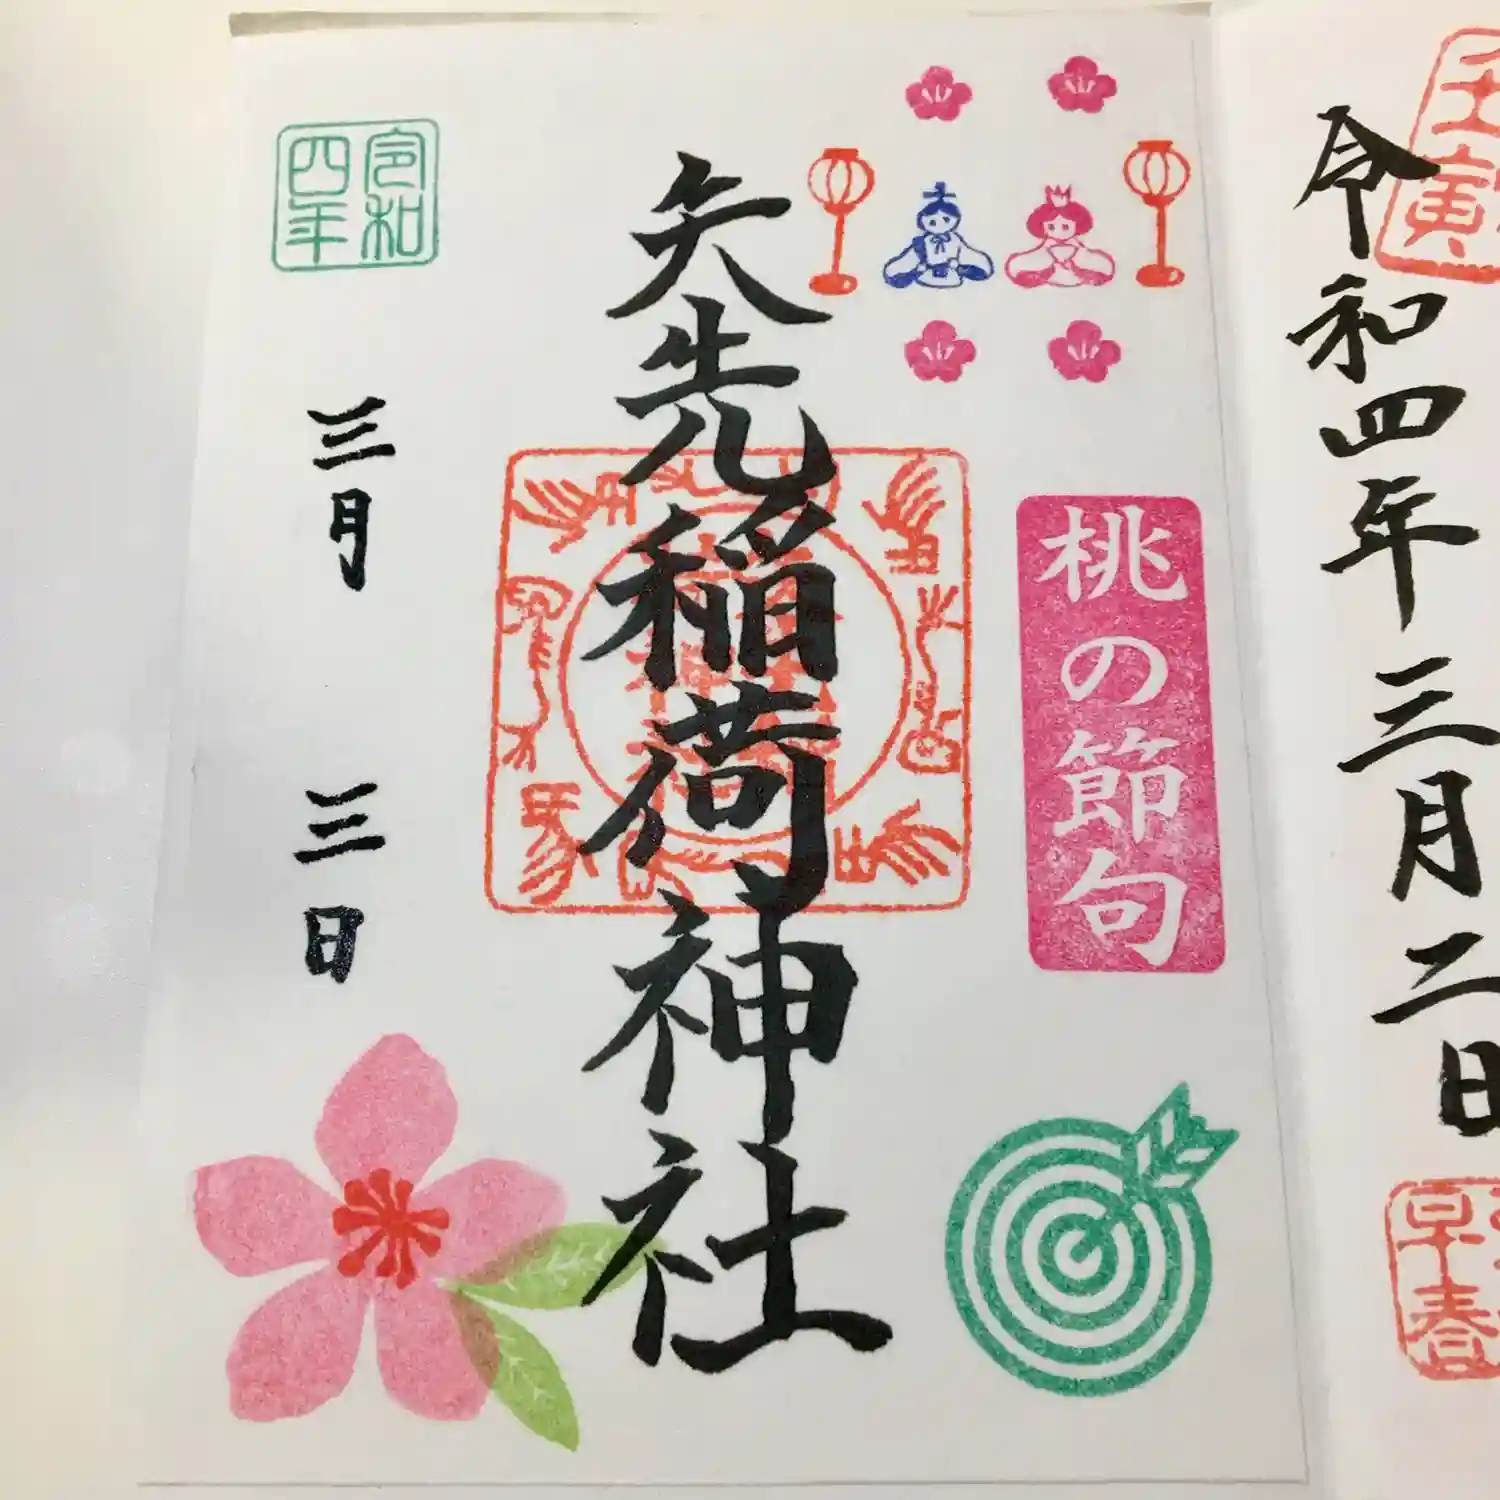 壬寅
令和四年 三月 二日
早春
桃の節句
矢先稲荷神社
令和四年
三月 三日